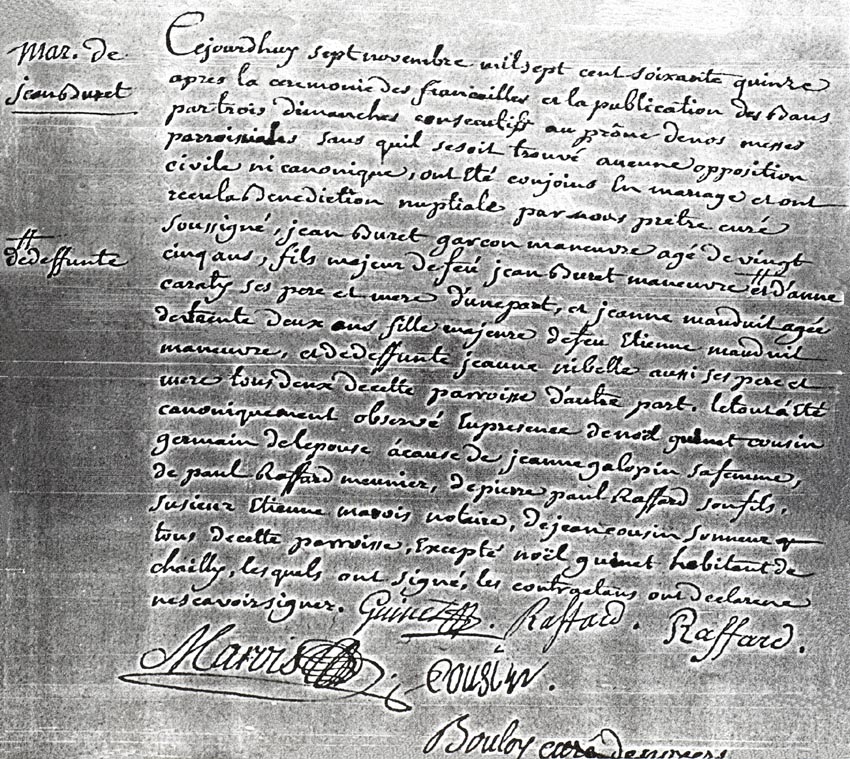 mar. de
jean Duret
Cejourdhuy sept novembre milsept cent soixante quinze
apres la ceremonie des fiancailles et la publication des bans
partrois dimanches consecutifs au prône denos messes
parroissiales sans quil sesoit trouvé aucune opposition
civile ni canonique, ont été conjoins En mariage et ont
recu la Benediction nuptiale par nous pretre curé
soussigné, jean Duret garcon maneuvre agé de vingt
# dedeffunte
cinq ans, fils majeur defeu jean Duret maneuvre # et d'anne
caraty ses pere et mere d'une part, et jeanne mauduit agée
detrente deux ans fille majeure defeu Etienne mauduit
maneuvre, et dedeffunte jeanne nibelle aussi ses pere et
mere tous deux decette parroisse d'autre part. letout a été
canoniquement observé Enpresence denoël guinet cousin
germain delepouse àcause de jeanne galopin safemme,
de paul Raffard meunier, depierre paul Raffard sonfils,
susieur Etienne marois notaire, dejean cousin sonneur
tous decette parroisse, Excepté noël guinet habitant de
chailly, lesquels ont signé, les contractans ont declarene
nescavoir signer. Guinet. Raffard. Raffard.
Marois Cousin.
Bouloy curé